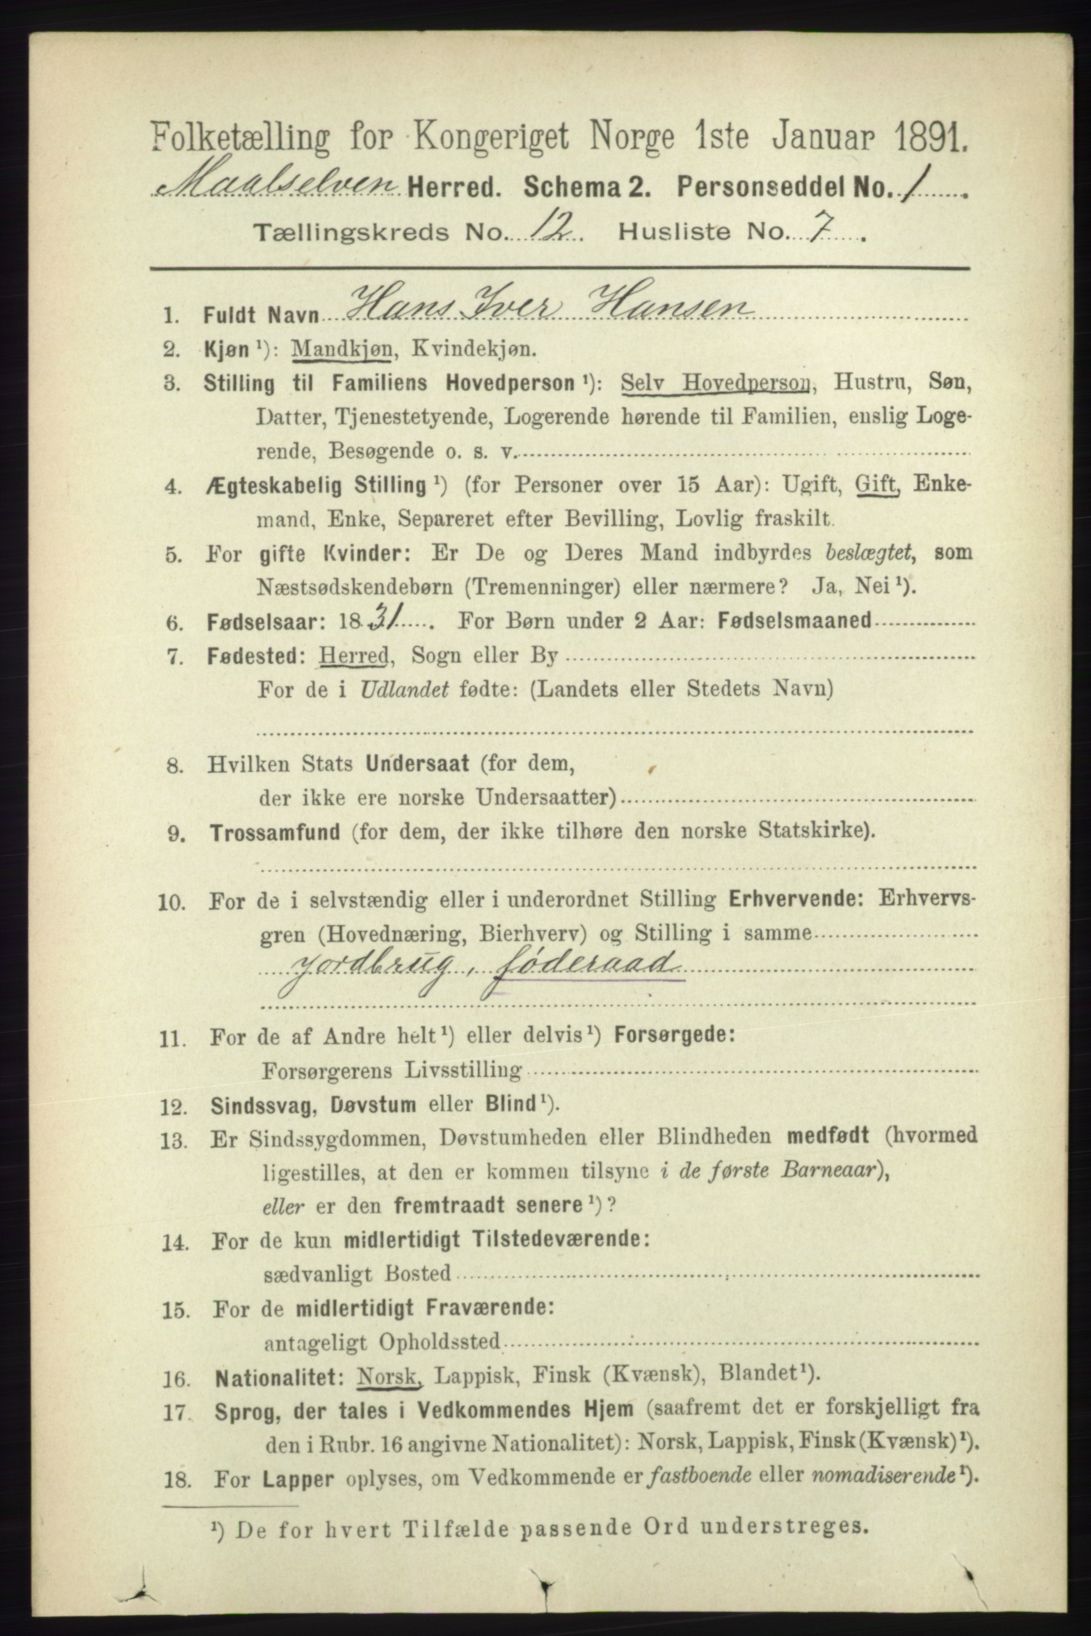 Folketælling for Kongeriget Norge 1ste Januar 1891.
Maalselven Herred. Schema 2. Personseddel No. 1.
Tællingskreds No. 12. Husliste No. 7.
1. Fuldt Navn Hans Iver Hansen
2. Kjøn ¹): Mandkjøn, Kvindekjøn.
3. Stilling til Familiens Hovedperson ¹): Selv Hovedperson, Hustru, Søn,
Datter, Tjenestetyende, Logerende hørende til Familien, enslig Loge-
rende, Besøgende o. s. v.
4. Ægteskabelig Stilling ¹) (for Personer over 15 Aar): Ugift, Gift, Enke-
mand, Enke, Separeret efter Bevilling, Lovlig fraskilt.
5. For gifte Kvinder: Er De og Deres Mand indbyrdes beslægtet, som
Næstsødskendebørn (Tremenninger) eller nærmere? Ja, Nei ¹).
6. Fødselsaar: 1831. For Børn under 2 Aar: Fødselsmaaned
7. Fødested: Herred, Sogn eller By
For de i Udlandet fødte: (Landets eller Stedets Navn)
8. Hvilken Stats Undersaat (for dem,
der ikke ere norske Undersaatter)
9. Trossamfund (for dem, der ikke tilhøre den norske Statskirke).
10. For de i selvstændig eller i underordnet Stilling Erhvervende: Erhvervs-
gren (Hovednæring, Bierhverv) og Stilling i samme
jordbrug, føderaad
11. For de af Andre helt ¹) eller delvis ¹) Forsørgede:
Forsørgerens Livsstilling
12. Sindssvag, Døvstum eller Blind ¹).
13. Er Sindssygdommen, Døvstumheden eller Blindheden medfødt (hvormed
ligestilles, at den er kommen tilsyne i de første Barneaar),
eller er den fremtraadt senere ¹)?
14. For de kun midlertidigt Tilstedeværende:
sædvanligt Bosted
15. For de midlertidigt Fraværende:
antageligt Opholdssted
16. Nationalitet: Norsk, Lappisk, Finsk (Kvænsk), Blandet ¹).
17. Sprog, der tales i Vedkommendes Hjem (saafremt det er forskjelligt fra
den i Rubr. 16 angivne Nationalitet): Norsk, Lappisk, Finsk (Kvænsk) ¹).
18. For Lapper oplyses, om Vedkommende er fastboende eller nomadiserende ¹).
¹) De for hvert Tilfælde passende Ord understreges.